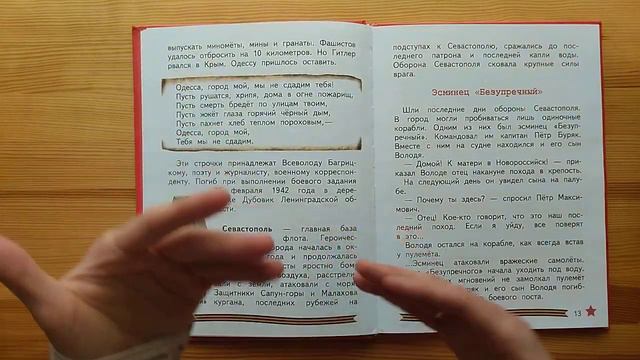 выпускать миномёты, мины и гранаты. Фашистов
удалось отбросить на 10 километров. Но Гитлер
рвался в Крым. Одессу пришлось оставить.
Одесса, город мой, мы не сдадим тебя!
Пусть рушатся, хрипя, дома в огне пожарищ,
Пусть смерть бредёт по улицам твоим,
Пусть жжёт глаза горячий чёрный дым,
Пусть пахнет хлеб теплом пороховым,—
Одесса, город мой,
Тебя мы не сдадим.
Эти строчки принадлежат Всеволоду Багриц-
кому, поэту и журналисту, военному корреспон-
денту. Погиб при выполнении боевого задания
февраля 1942 года в дере-
Дубовик Ленинградской об-
Севастополь — главная база
флота. Героичес-
города началась в ок-
года и продолжалась
яростно бом-
воздуха, расстрели-
с земли, атаковали с моря
Защитники Сапун-горы и Малахова
кургана, последних рубежей на
подступах к Севастополю, сражались до пос-
леднего патрона и последней капли воды.
Оборона Севастополя сковала крупные силы
врага.
Эсминец «Безупречный»
Шли последние дни обороны Севастополя.
В город могли пробиваться лишь одиночные
корабли. Одним из них был эсминец «Безуп-
речный». Командовал им капитан Пётр Буряк.
Вместе с ним на судне находился и его сын
Володя.
— Домой! К матери в Новороссийск! — при-
казал Володе отец накануне похода в крепость.
На следующий день он увидел сына на палу-
бе.
— Почему ты здесь? — спросил Пётр Макси-
мович.
— Отец! Кое-кто говорит, что это наш пос-
ледний поход. Если я уйду, все поверят
в это...
Володя остался на корабле, как всегда встав
у пулемёта.
...Эсминец атаковали вражеские самолёты.
«Безупречного» начала уходить под воду.
мгновений не замолкал пулемёт
и его сын Володя погиб-
боевого поста.
13